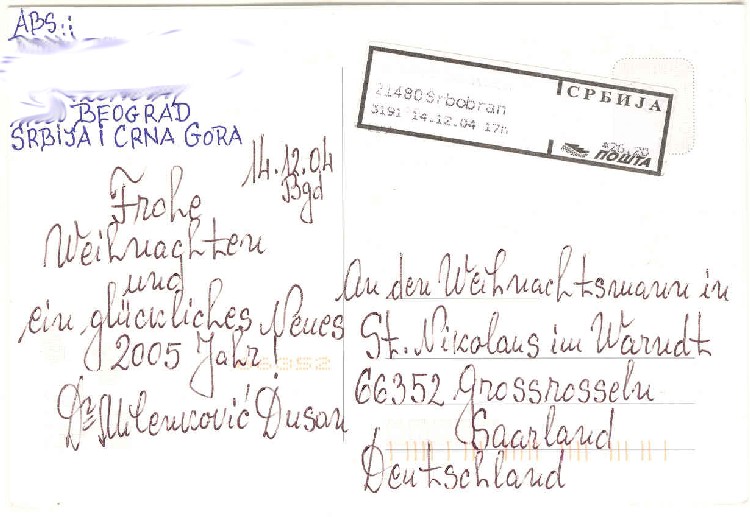 ABS.::
BEOGRAD
SRBIJA I CRNA GORA
14.12.04
Bgd
Frohe
Weihnaghten
und
ein glückliches Neues
2005 Jahr!
Dr Milenković Dušan
21480 Srbobran
3191 14.12.04 17h
СРБИЈА
*26,20
ПОШТА
An den Weihnachtsmann in
St. Nikolaus im Warndt
66352 Grossrosseln
Saarland
Deutschland
66352